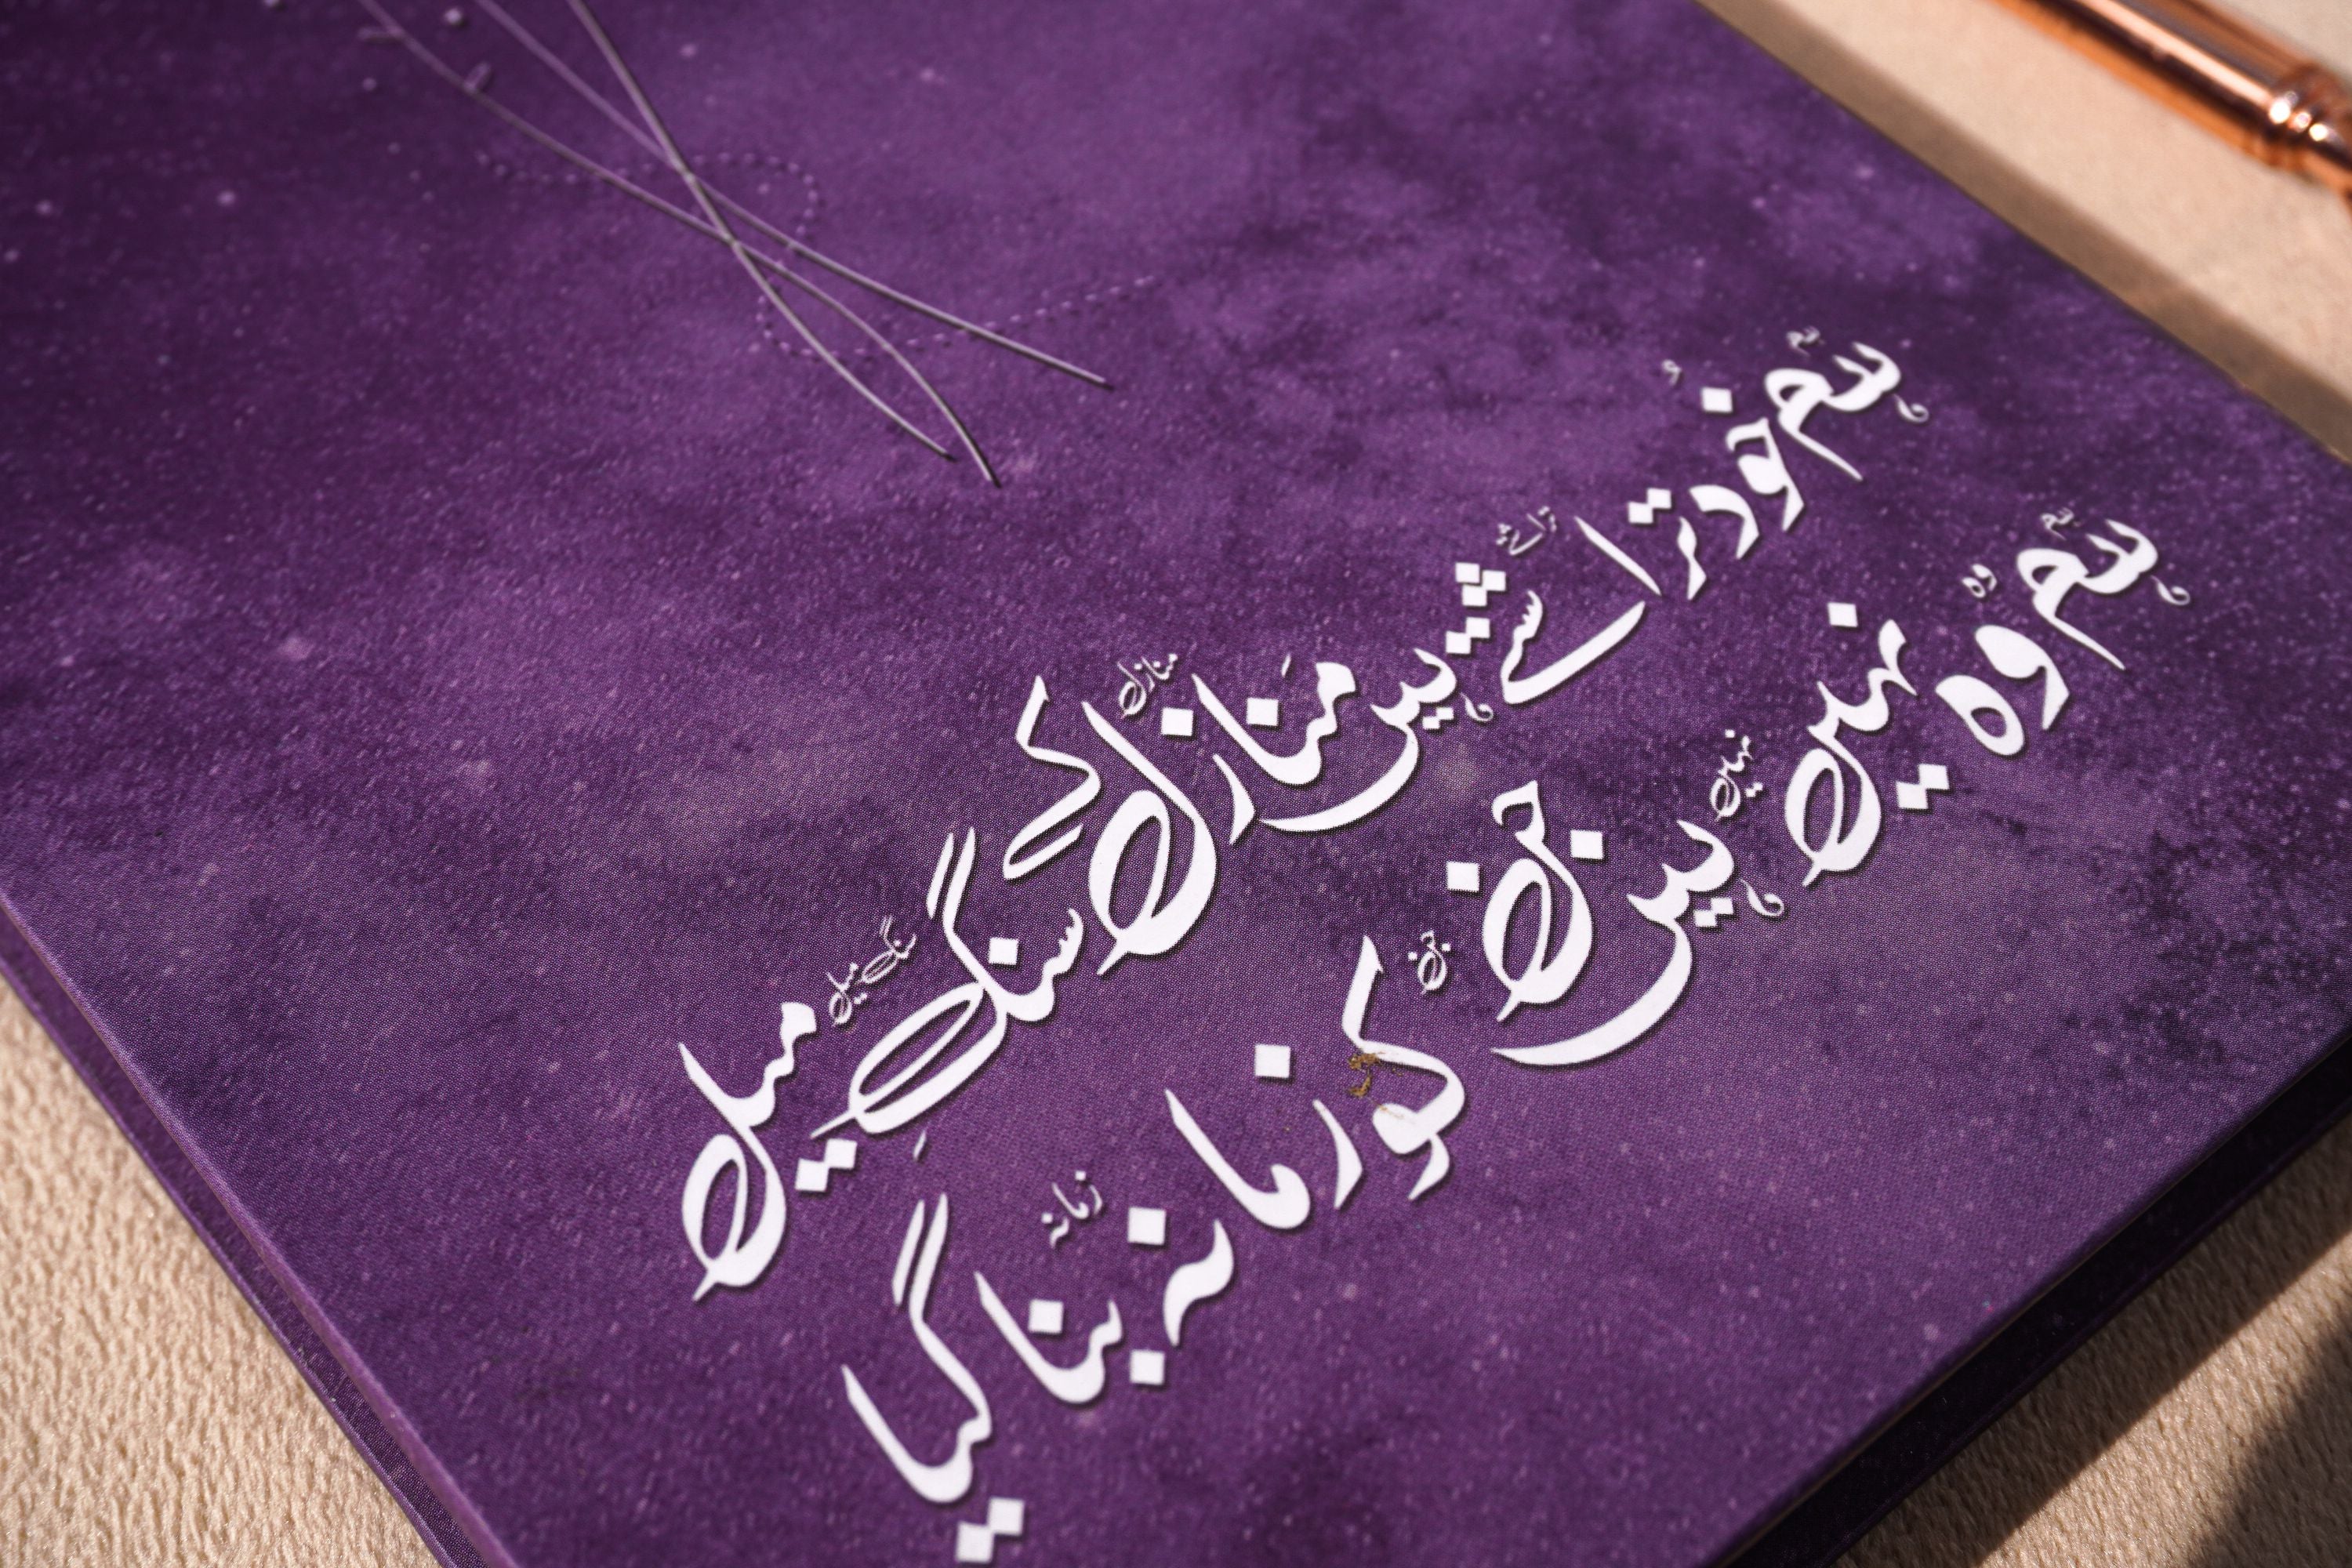 ہم خود تراشتے ہیں منازل کے سنگِ میل
ہم وہ نہیں ہیں جن کو زمانہ بنا گیا